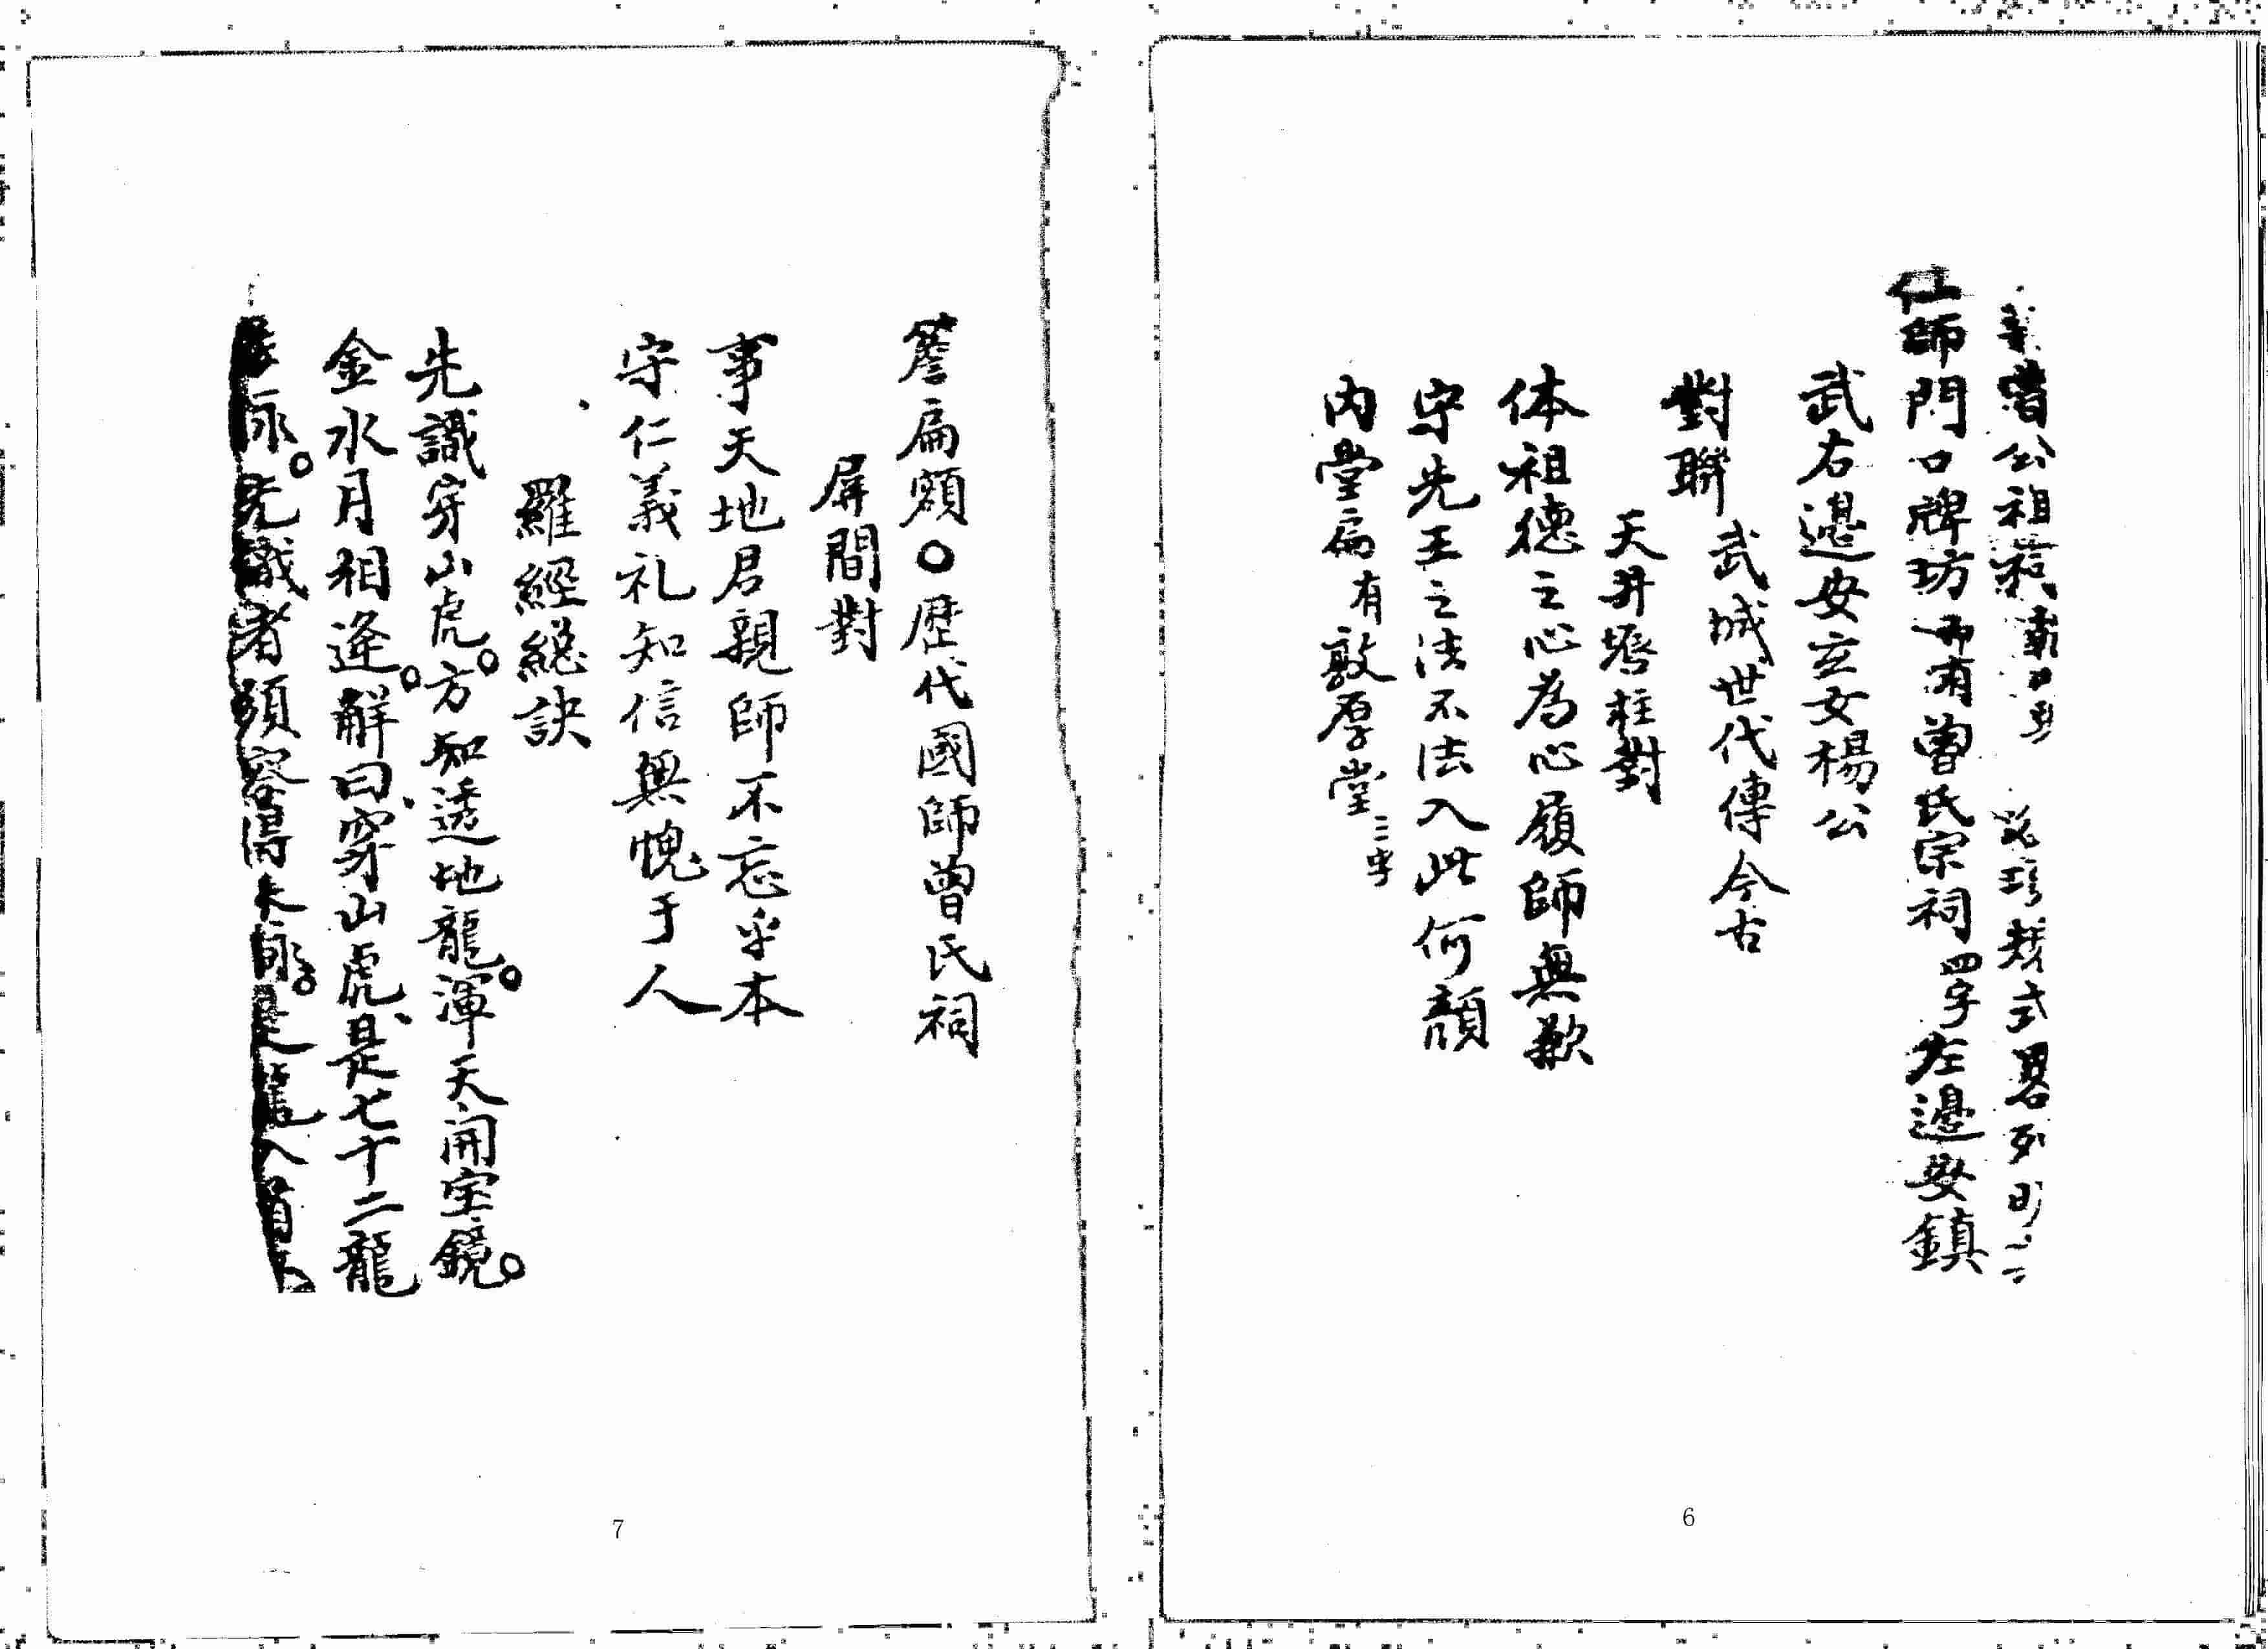 曾公祖祠 式畧列明
師門口牌坊 曾氏宗祠四字左邊安鎮
武右邊安立文楊公
對聯 武城世代傳今古
天井塔柱對
体祖德之心為心履師無歉
守先王之法不法入此何顔
内堂扁有敦厚堂三字
6
簷扁額○歷代國師曾氏祠
屏間對
事天地君親師不忘乎本
守仁義礼知信無愧于人
羅經總訣
先識穿山虎。方知透地龍。渾天開宝鏡。
金水月相逢。解曰、穿山虎、是七十二龍
脉。先識者須察得來脉。是龍入首
7